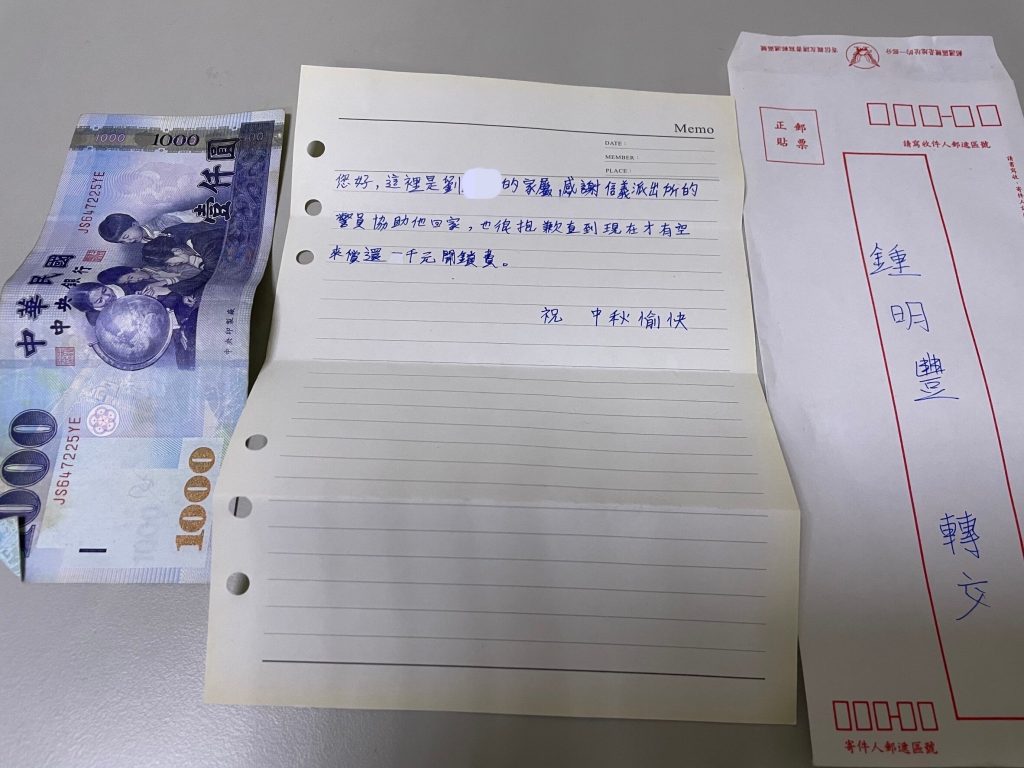 1000
1000
100
壹仟圓
JS647225YE
中華民國
中央銀行
中央印製廠
JS647225YE
1000
1000
Memo
DATE：
MEMBER：
PLACE：
您好，這裡是劉 的家屬，感謝信義派出所的
警員協助他回家，也很抱歉直到現在才有空
來償還一千元開鎖費。
祝 中秋愉快
郵遞區號是地址的一部分
寄信親友請書寫郵遞區號
正貼
郵票
請寫收件人郵遞區號
鍾明豐 轉交
寄件人郵遞區號